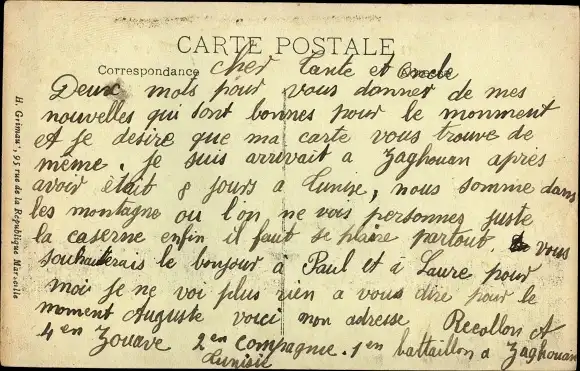 CARTE POSTALE
Correspondance
Adresse
cher Tante et oncle
Deux mots pour vous donner de mes
nouvelles qui sont bonnes pour le monment
et je désire que ma carte vous trouve de
même. je suis arrivait a Zaghouan après
avoir était 8 jours a Tunise, nous somme dans
les montagne ou l'on ne vois personnes juste
la caserne enfin il faut se plaire partout. vous
souhaiterais le bonjour à Paul et à Laure pour
moi je ne voi plus rien a vous dire pour le
moment Auguste voici mon adresse Recollon A
4 en Zouave 2 en compagnie. 1 en battaillon a Zaghouan
Tunisie
H. Grimaud, 95 rue de la République Marseille